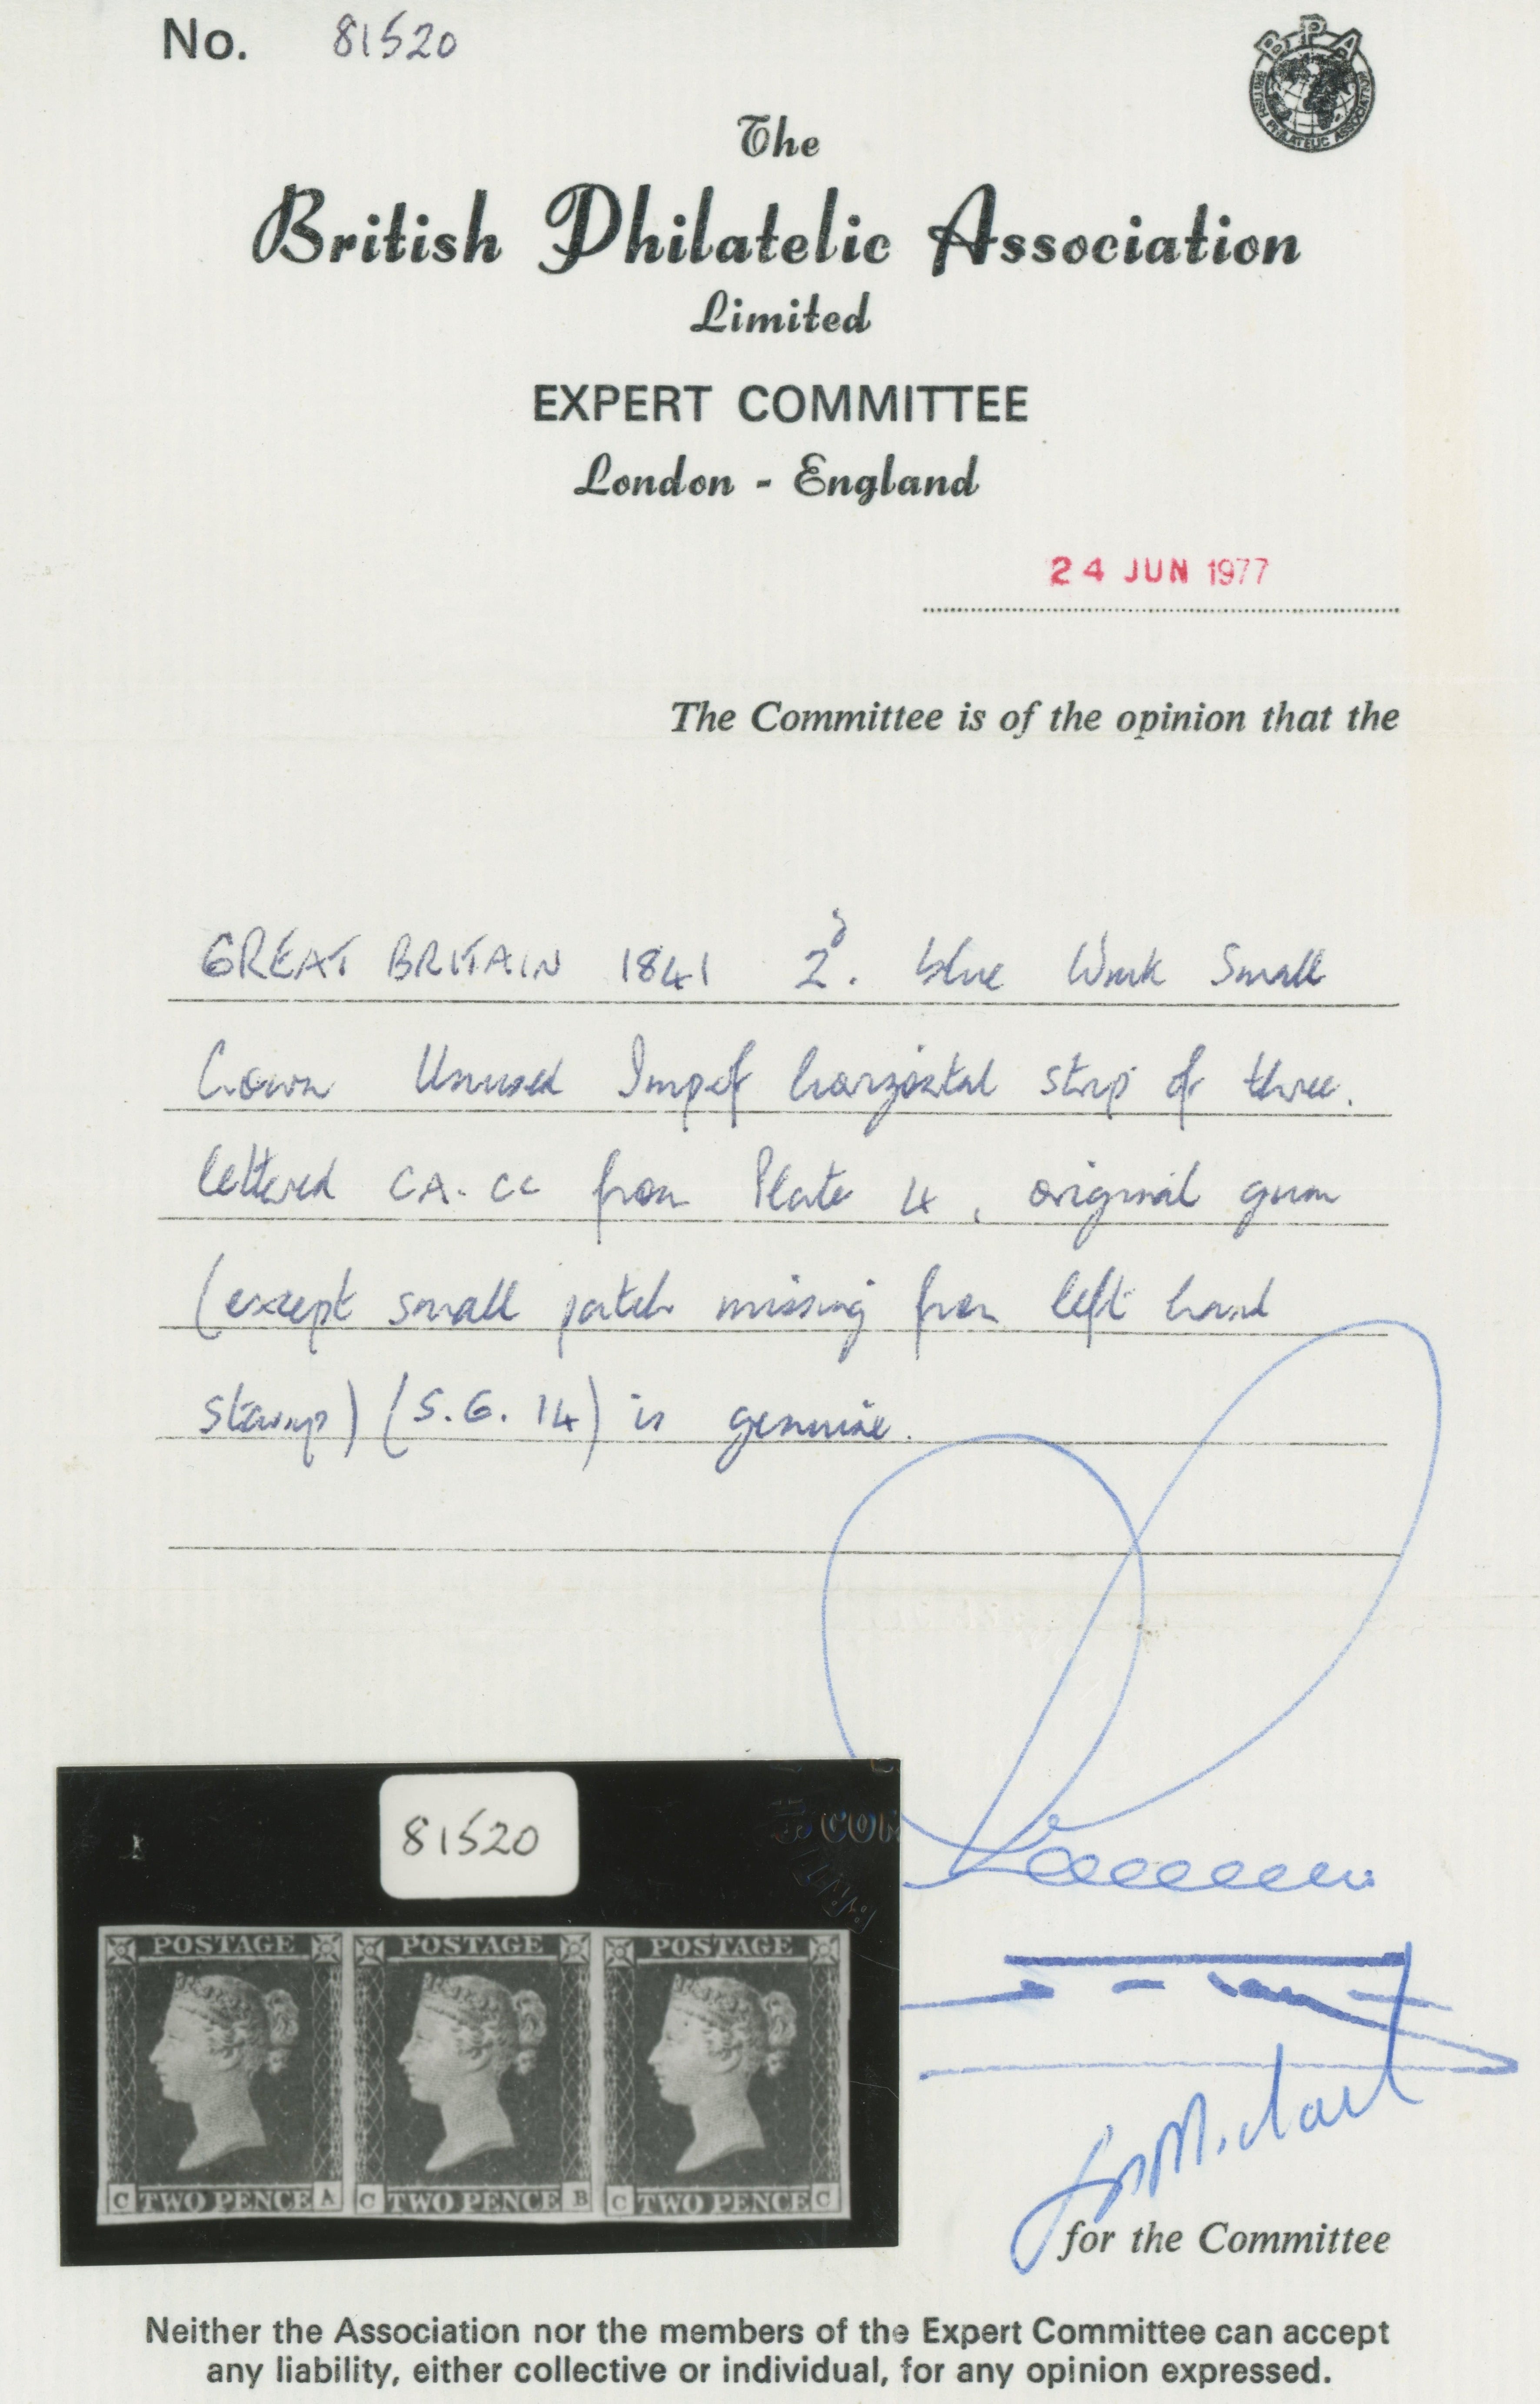 No. 81520
BPA
BRITISH PHILATELIC ASSOCIATION
The
British Philatelic Association
Limited
EXPERT COMMITTEE
London - England
24 JUN 1977
The Committee is of the opinion that the
GREAT BRITAIN 1841 2d. blue Wmk Small
Crown Unused Imperf horizontal strip of three.
lettered CA-CC from Plate 4, original gum
(except small patch missing from left hand
stamp) (S.G. 14) is genuine.
81520
POSTAGE POSTAGE POSTAGE
C TWO PENCE A C TWO PENCE B C TWO PENCE C
for the Committee
Neither the Association nor the members of the Expert Committee can accept
any liability, either collective or individual, for any opinion expressed.